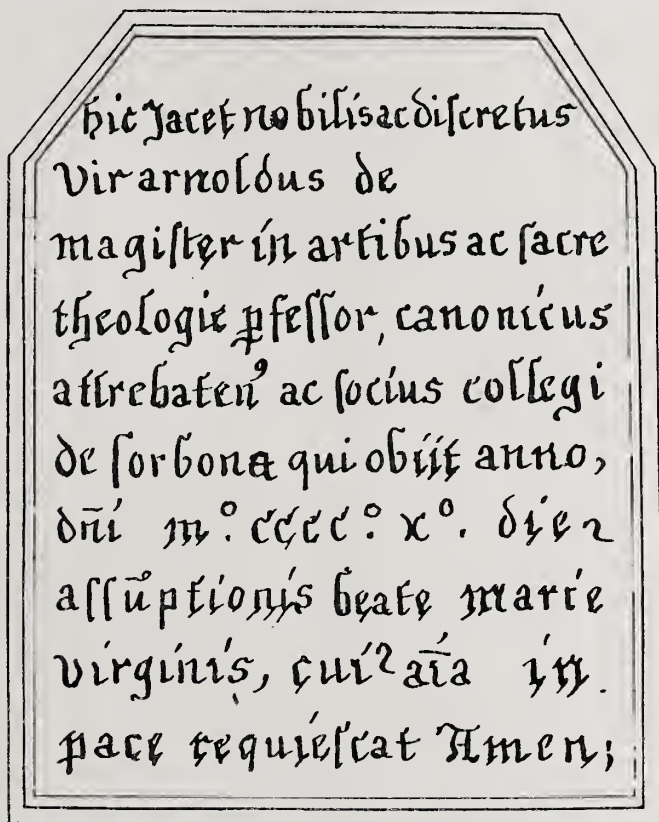 hic Jacet nobilis ac discretus
vir arnoldus de
magiſter in artibus ac ſacre
theologie ꝑfeſſor, canonicus
attrebateñ⁹ ac ſocius collegi
de ſorbona qui obiit anno,
dn̄i mº. ccccº: xº. die 2
aſſūptionis beate marie
virginis, cui⁹ aīa in.
pace requieſcat Amen;